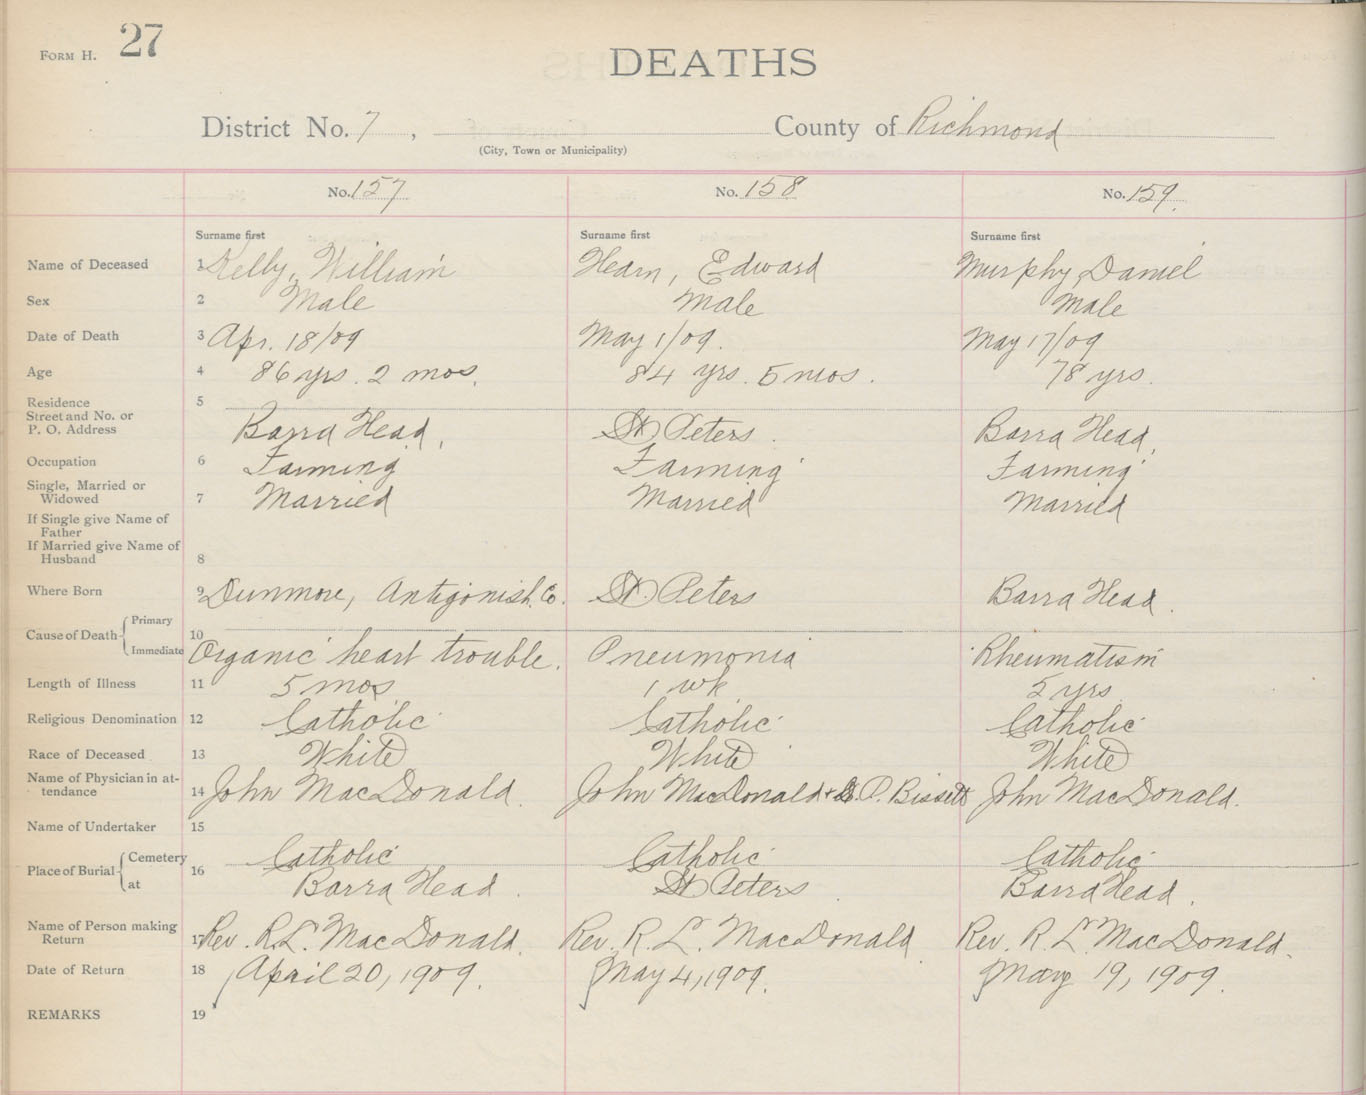 FORM H. 27
DEATHS
District No. 7, County of Richmond
(City, Town or Municipality)
No. 157 No. 158 No. 159.
Surname first Surname first Surname first
Name of Deceased 1 Kelly, William Hearn, Edward Murphy, Daniel
Sex 2 Male Male Male
Date of Death 3 Apr. 18/09 May 1/09. May 17/09
Age 4 86 yrs. 2 mos. 84 yrs. 5 mos. 78 yrs.
Residence 5
Street and No. or
P. O. Address Barra Head, St. Peters. Barra Head,
Occupation 6 Farming Farming Farming
Single, Married or
Widowed 7 Married Married Married
If Single give Name of
Father
If Married give Name of
Husband 8
Where Born 9 Dunmore, Antigonish Co. St. Peters Barra Head.
Cause of Death Primary 10
Immediate Organic heart trouble. Pneumonia Rheumatism
Length of Illness 11 5 mos 1 wk 5 yrs
Religious Denomination 12 Catholic Catholic Catholic
Race of Deceased 13 White White White
Name of Physician in at-
tendance 14 John MacDonald. John MacDonald + P. Bissett John MacDonald.
Name of Undertaker 15
Place of Burial Cemetery 16 Catholic Catholic Catholic
at Barra Head. St Peters Barra Head.
Name of Person making
Return 17 Rev. R. L. MacDonald. Rev. R. L. MacDonald Rev. R. L. MacDonald.
Date of Return 18 April 20, 1909. May 4, 1909. May 19, 1909.
REMARKS 19